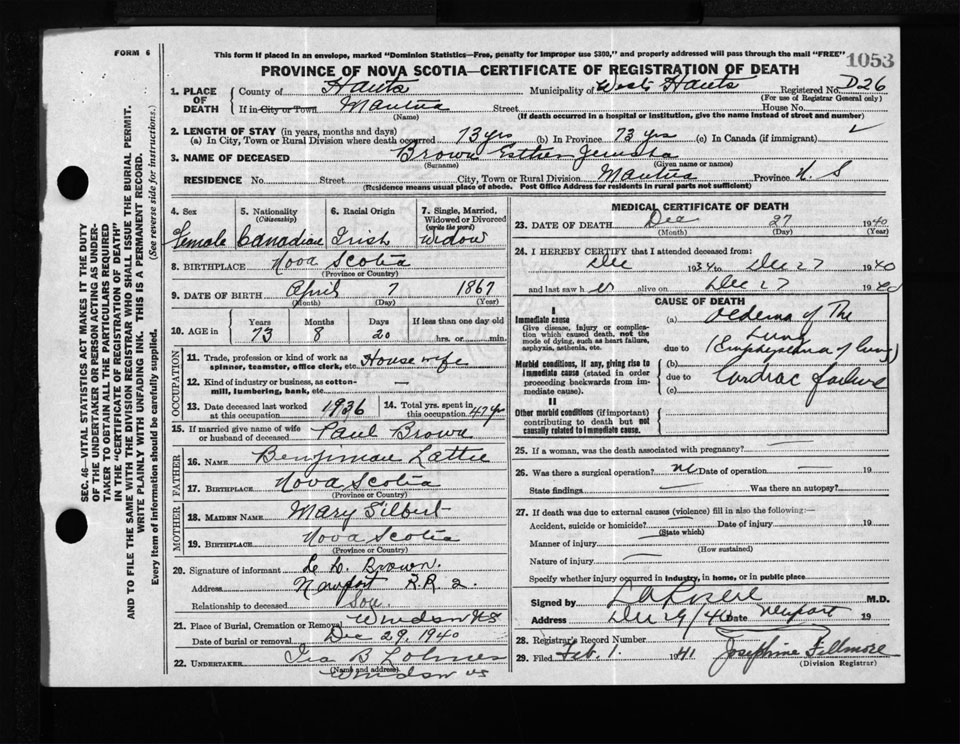 FORM 6
This form if placed in an envelope, marked "Dominion Statistics—Free, penalty for improper use $300," and properly addressed will pass through the mail "FREE"
1053
PROVINCE OF NOVA SCOTIA—CERTIFICATE OF REGISTRATION OF DEATH
1. PLACE OF DEATH
County of Hants Municipality of West Hants Registered No. D26
(For use of Registrar General only)
If in City or Town Mantua Street House No.
(Name) (If death occurred in a hospital or institution, give the name instead of street and number)
2. LENGTH OF STAY (in years, months and days)
(a) In City, Town or Rural Division where death occurred 73 yrs (b) In Province 73 yrs (c) In Canada (if immigrant)
3. NAME OF DECEASED Brown Esther
(Surname) (Given name or names)
RESIDENCE No. Street City, Town or Rural Division Mantua Province N. S
(Residence means usual place of abode. Post Office Address for residents in rural parts not sufficient)
4. Sex 5. Nationality (Citizenship) 6. Racial Origin 7. Single, Married, Widowed or Divorced (write the word)
Female Canadian Irish Widow
8. BIRTHPLACE Nova Scotia
(Province or Country)
9. DATE OF BIRTH April 7 1867
(Month) (Day) (Year)
10. AGE in Years Months Days If less than one day old
73 8 20 hrs. or min.
OCCUPATION
11. Trade, profession or kind of work as spinner, teamster, office clerk, etc. House wife
12. Kind of industry or business, as cotton-mill, lumbering, bank, etc. —
13. Date deceased last worked at this occupation 1936 14. Total yrs. spent in this occupation 47 yr
15. If married give name of wife or husband of deceased Paul Brown
FATHER
16. NAME Benjiman Lattie
17. BIRTHPLACE Nova Scotia
(Province or Country)
MOTHER
18. MAIDEN NAME Mary Silbert
19. BIRTHPLACE Nova Scotia
(Province or Country)
20. Signature of informant Brown.
Address Newport R.R 2.
Relationship to deceased Son
21. Place of Burial, Cremation or Removal Windsor NS
Date of burial or removal Dec 29, 1940
22. UNDERTAKER Ira B
(Name and address)
Windsor NS
MEDICAL CERTIFICATE OF DEATH
23. DATE OF DEATH Dec 27 1940
(Month) (Day) (Year)
24. I HEREBY CERTIFY that I attended deceased from:
Dec 1934 to Dec 27 1940
and last saw her alive on Dec 27 1940
CAUSE OF DEATH
I
Immediate cause
Give disease, injury or complication which caused death, not the mode of dying, such as heart failure, asphyxia, asthenia, etc.
(a) Oedema of The Lung
due to (Emphysema of lung)
Morbid conditions, if any, giving rise to immediate cause (stated in order proceeding backwards from immediate cause).
(b)
due to Cardiac failure
(c)
II
Other morbid conditions (if important) contributing to death but not causally related to immediate cause.
25. If a woman, was the death associated with pregnancy? —
26. Was there a surgical operation? no Date of operation — 19
State findings — Was there an autopsy?
27. If death was due to external causes (violence) fill in also the following:—
Accident, suicide or homicide? Date of injury 19
(State which)
Manner of injury
(How sustained)
Nature of injury
Specify whether injury occurred in industry, in home, or in public place
Signed by M.D.
Address Newport Date Dec 29/40 19
28. Registrar's Record Number
29. Filed Feb. 1 1941 Josephine Fillmore
(Division Registrar)
SEC. 46—VITAL STATISTICS ACT MAKES IT THE DUTY
OF THE UNDERTAKER OR PERSON ACTING AS UNDER-
TAKER TO OBTAIN ALL THE PARTICULARS REQUIRED
IN THE "CERTIFICATE OF REGISTRATION OF DEATH"
AND TO FILE THE SAME WITH THE DIVISION REGISTRAR WHO SHALL ISSUE THE BURIAL PERMIT.
WRITE PLAINLY WITH UNFADING INK. THIS IS A PERMANENT RECORD.
Every item of information should be carefully supplied. (See reverse side for instructions.)